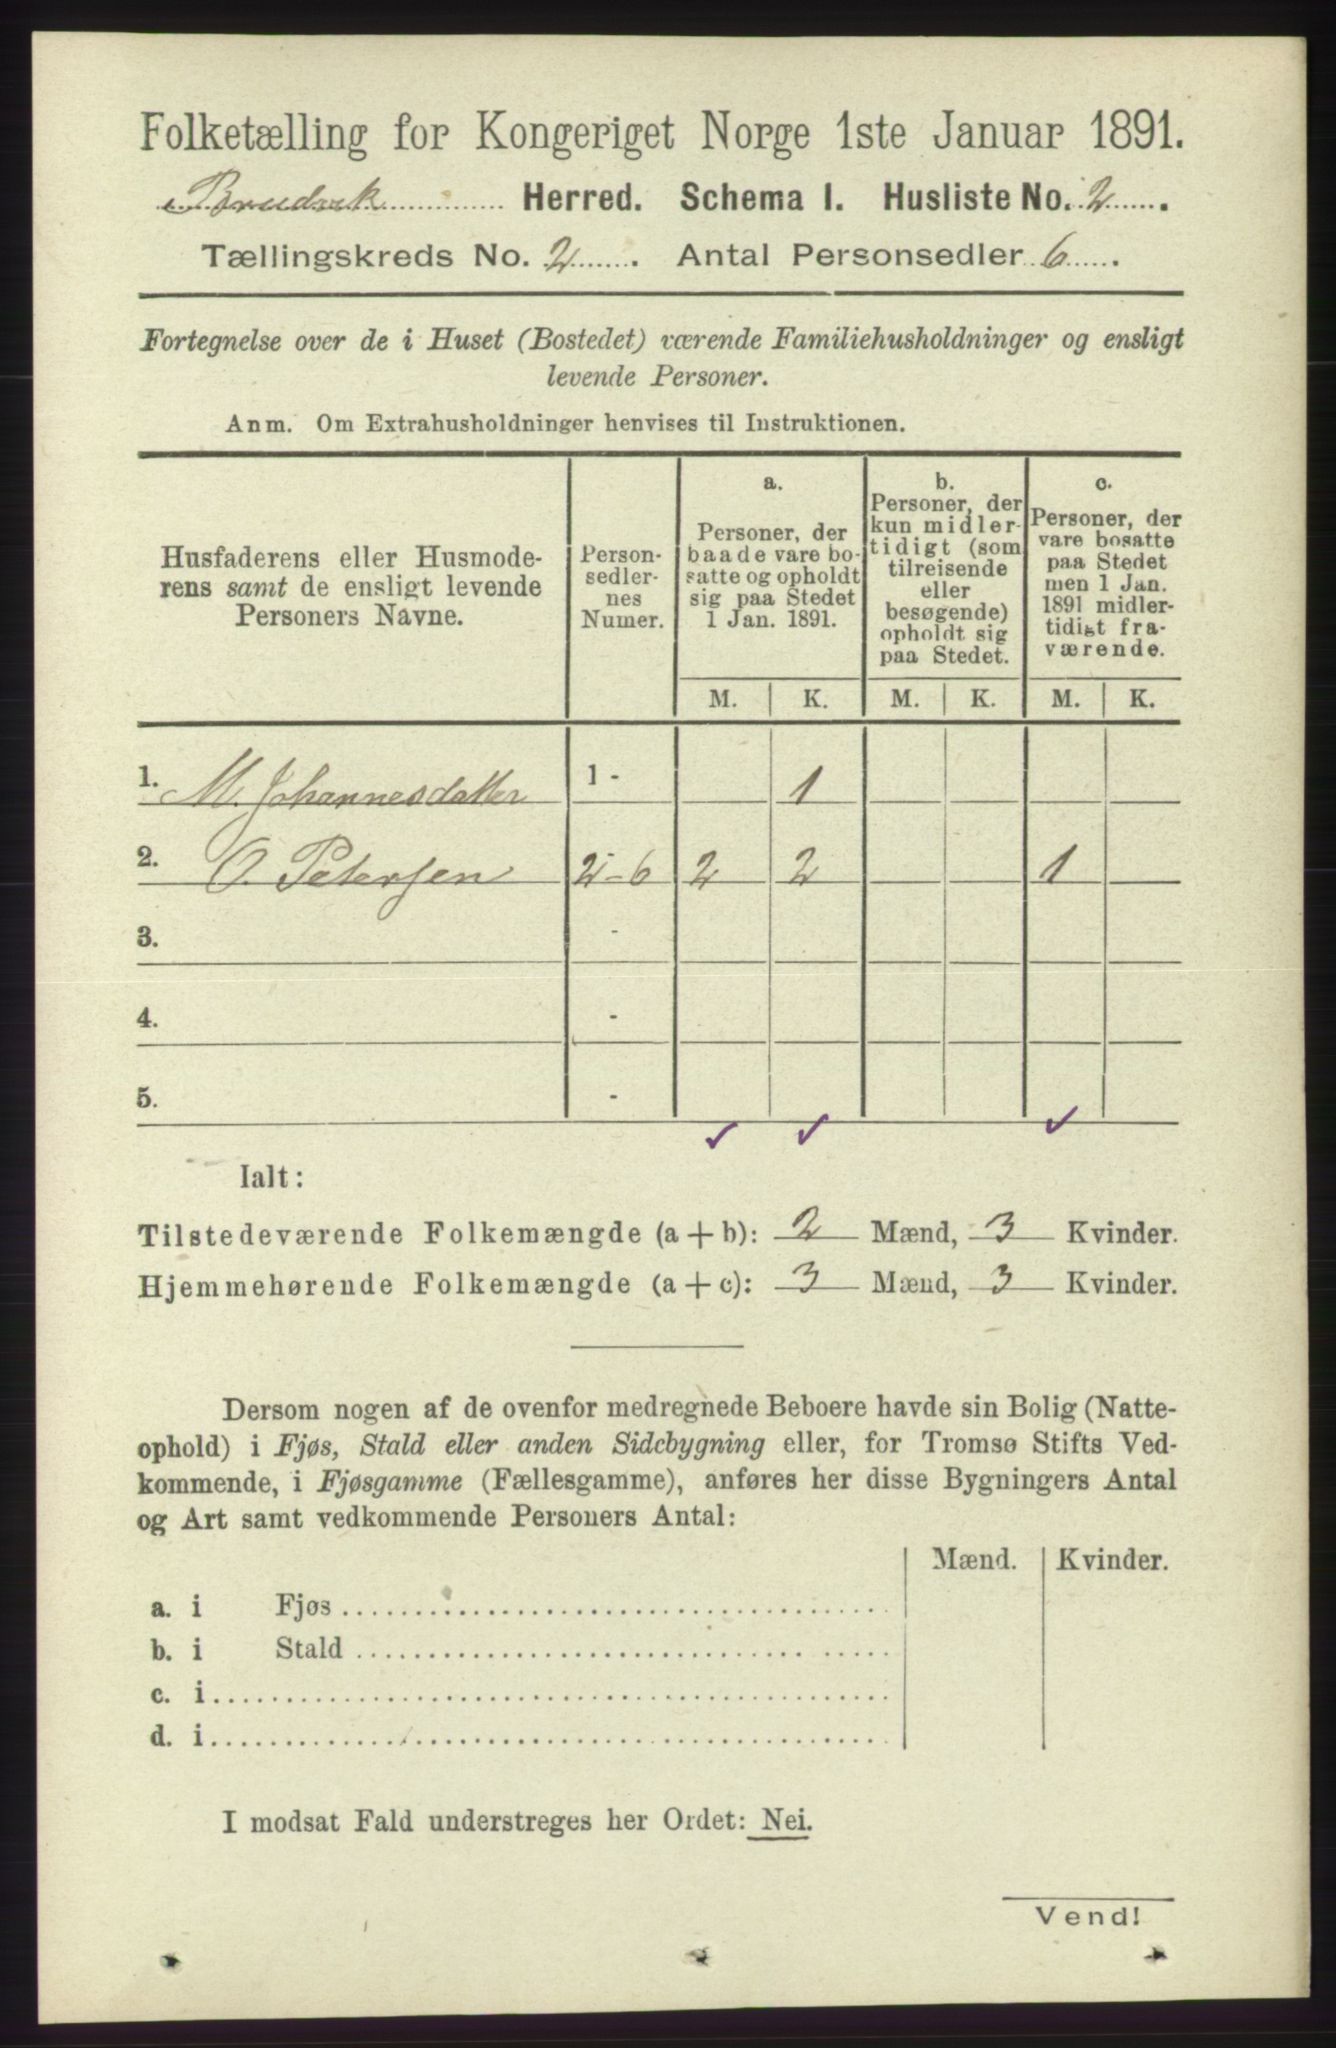 Folketælling for Kongeriget Norge 1ste Januar 1891.
Herred. Schema I. Husliste No. 2.
Tællingskreds No. 2. Antal Personsedler 6.
Fortegnelse over de i Huset (Bostedet) værende Familiehusholdninger og ensligt
levende Personer.
Anm. Om Extrahusholdninger henvises til Instruktionen.
Husfaderens eller Husmode-
rens samt de ensligt levende
Personers Navne.
Person-
sedler-
nes
Numer.
a.
Personer, der
baade vare bo-
satte og opholdt
sig paa Stedet
1 Jan. 1891.
b.
Personer, der
kun midler-
tidigt (som
tilreisende
eller
besøgende)
opholdt sig
paa Stedet.
c.
Personer, der
vare bosatte
paa Stedet
men 1 Jan.
1891 midler-
tidigt fra-
værende.
M. K. M. K. M. K.
1. M. Johannesdatter 1 - 1
2. O. Petersen 2-6 2 2 1
3. -
4. -
5. -
Ialt:
Tilstedeværende Folkemængde (a + b): 2 Mænd, 3 Kvinder.
Hjemmehørende Folkemængde (a + c): 3 Mænd, 3 Kvinder.
Dersom nogen af de ovenfor medregnede Beboere havde sin Bolig (Natte-
ophold) i Fjøs, Stald eller anden Sidebygning eller, for Tromsø Stifts Ved-
kommende, i Fjøsgamme (Fællesgamme), anføres her disse Bygningers Antal
og Art samt vedkommende Personers Antal:
Mænd. Kvinder.
a. i Fjøs
b. i Stald
c. i
d. i
I modsat Fald understreges her Ordet: Nei.
Vend!